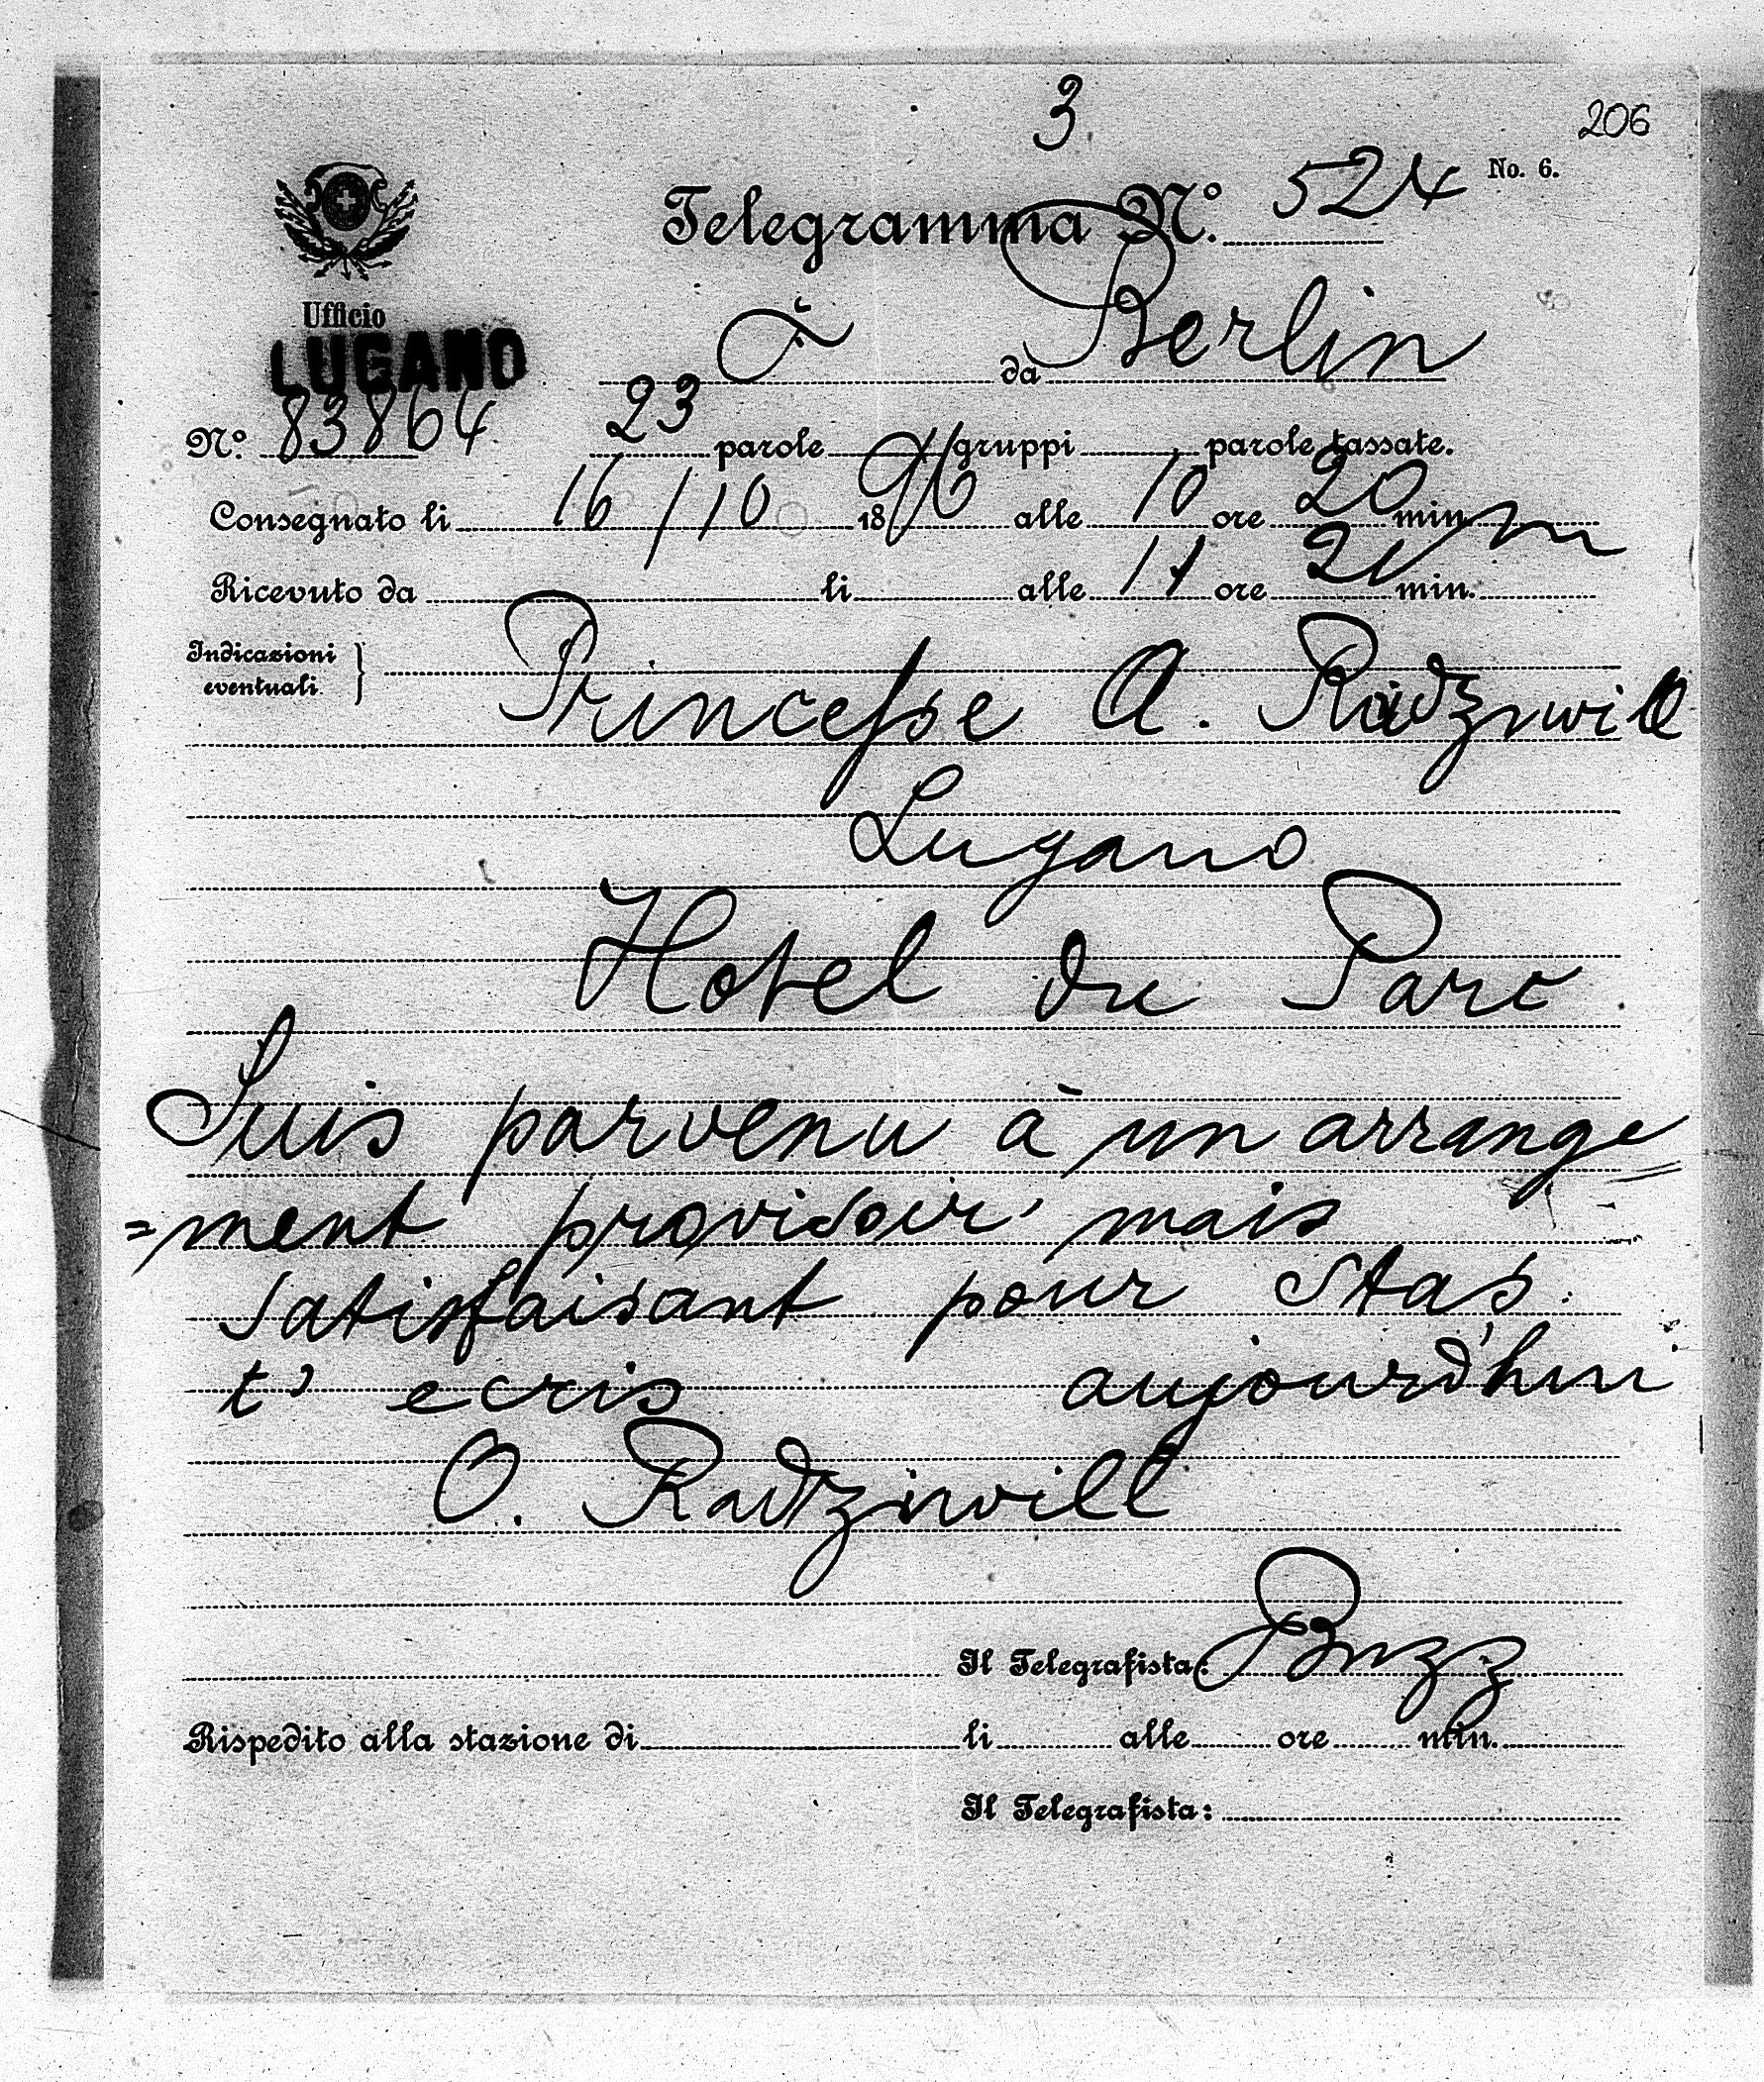 3
206
No. 6.
Telegramma No. 524
Ufficio
LUGANO
da Berlin
No. 83864 23 parole gruppi parole tassate.
Consegnato li 16/10 1896 alle 10 ore 20 min. m
Ricevuto da li alle 11 ore 21 min.
Indicazioni
eventuali
Princesse A. Radziwill
Lugano
Hotel du Parc
Suis parvenu à un arrange
=ment provisoir' mais
satisfaisant pour Stas
t' ecris aujourd'hui
O. Radziwill
Il Telegrafista:
Rispedito alla stazione di li alle ore min.
Il Telegrafista: